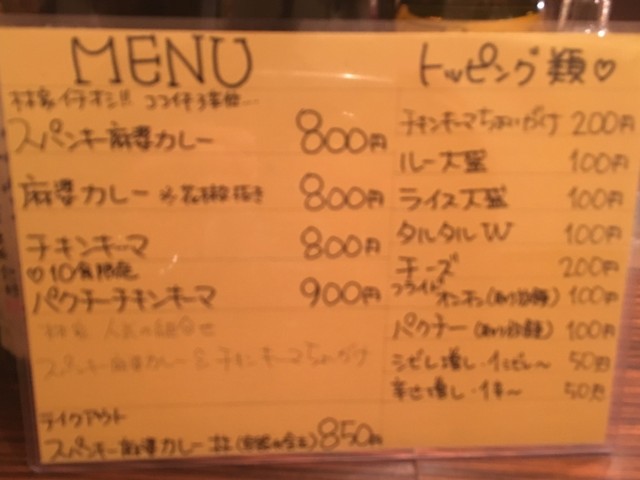 MENU
スパンキー麻婆カレー 800円
麻婆カレー ※花椒抜き 800円
チキンキーマ 800円
♡10食限定
パクチーチキンキーマ 900円
スパンキー麻婆カレー & チキンキーマちょいがけ
テイクアウト
スパンキー麻婆カレー 850円
トッピング類♡
チキンキーマちょいがけ 200円
ルー大盛 100円
ライス大盛 100円
タルタルW 100円
チーズ 200円
フライドオニオン 100円
パクチー 100円
シビレ増し・1ビレ〜 50円
辛さ増し・1辛〜 50円